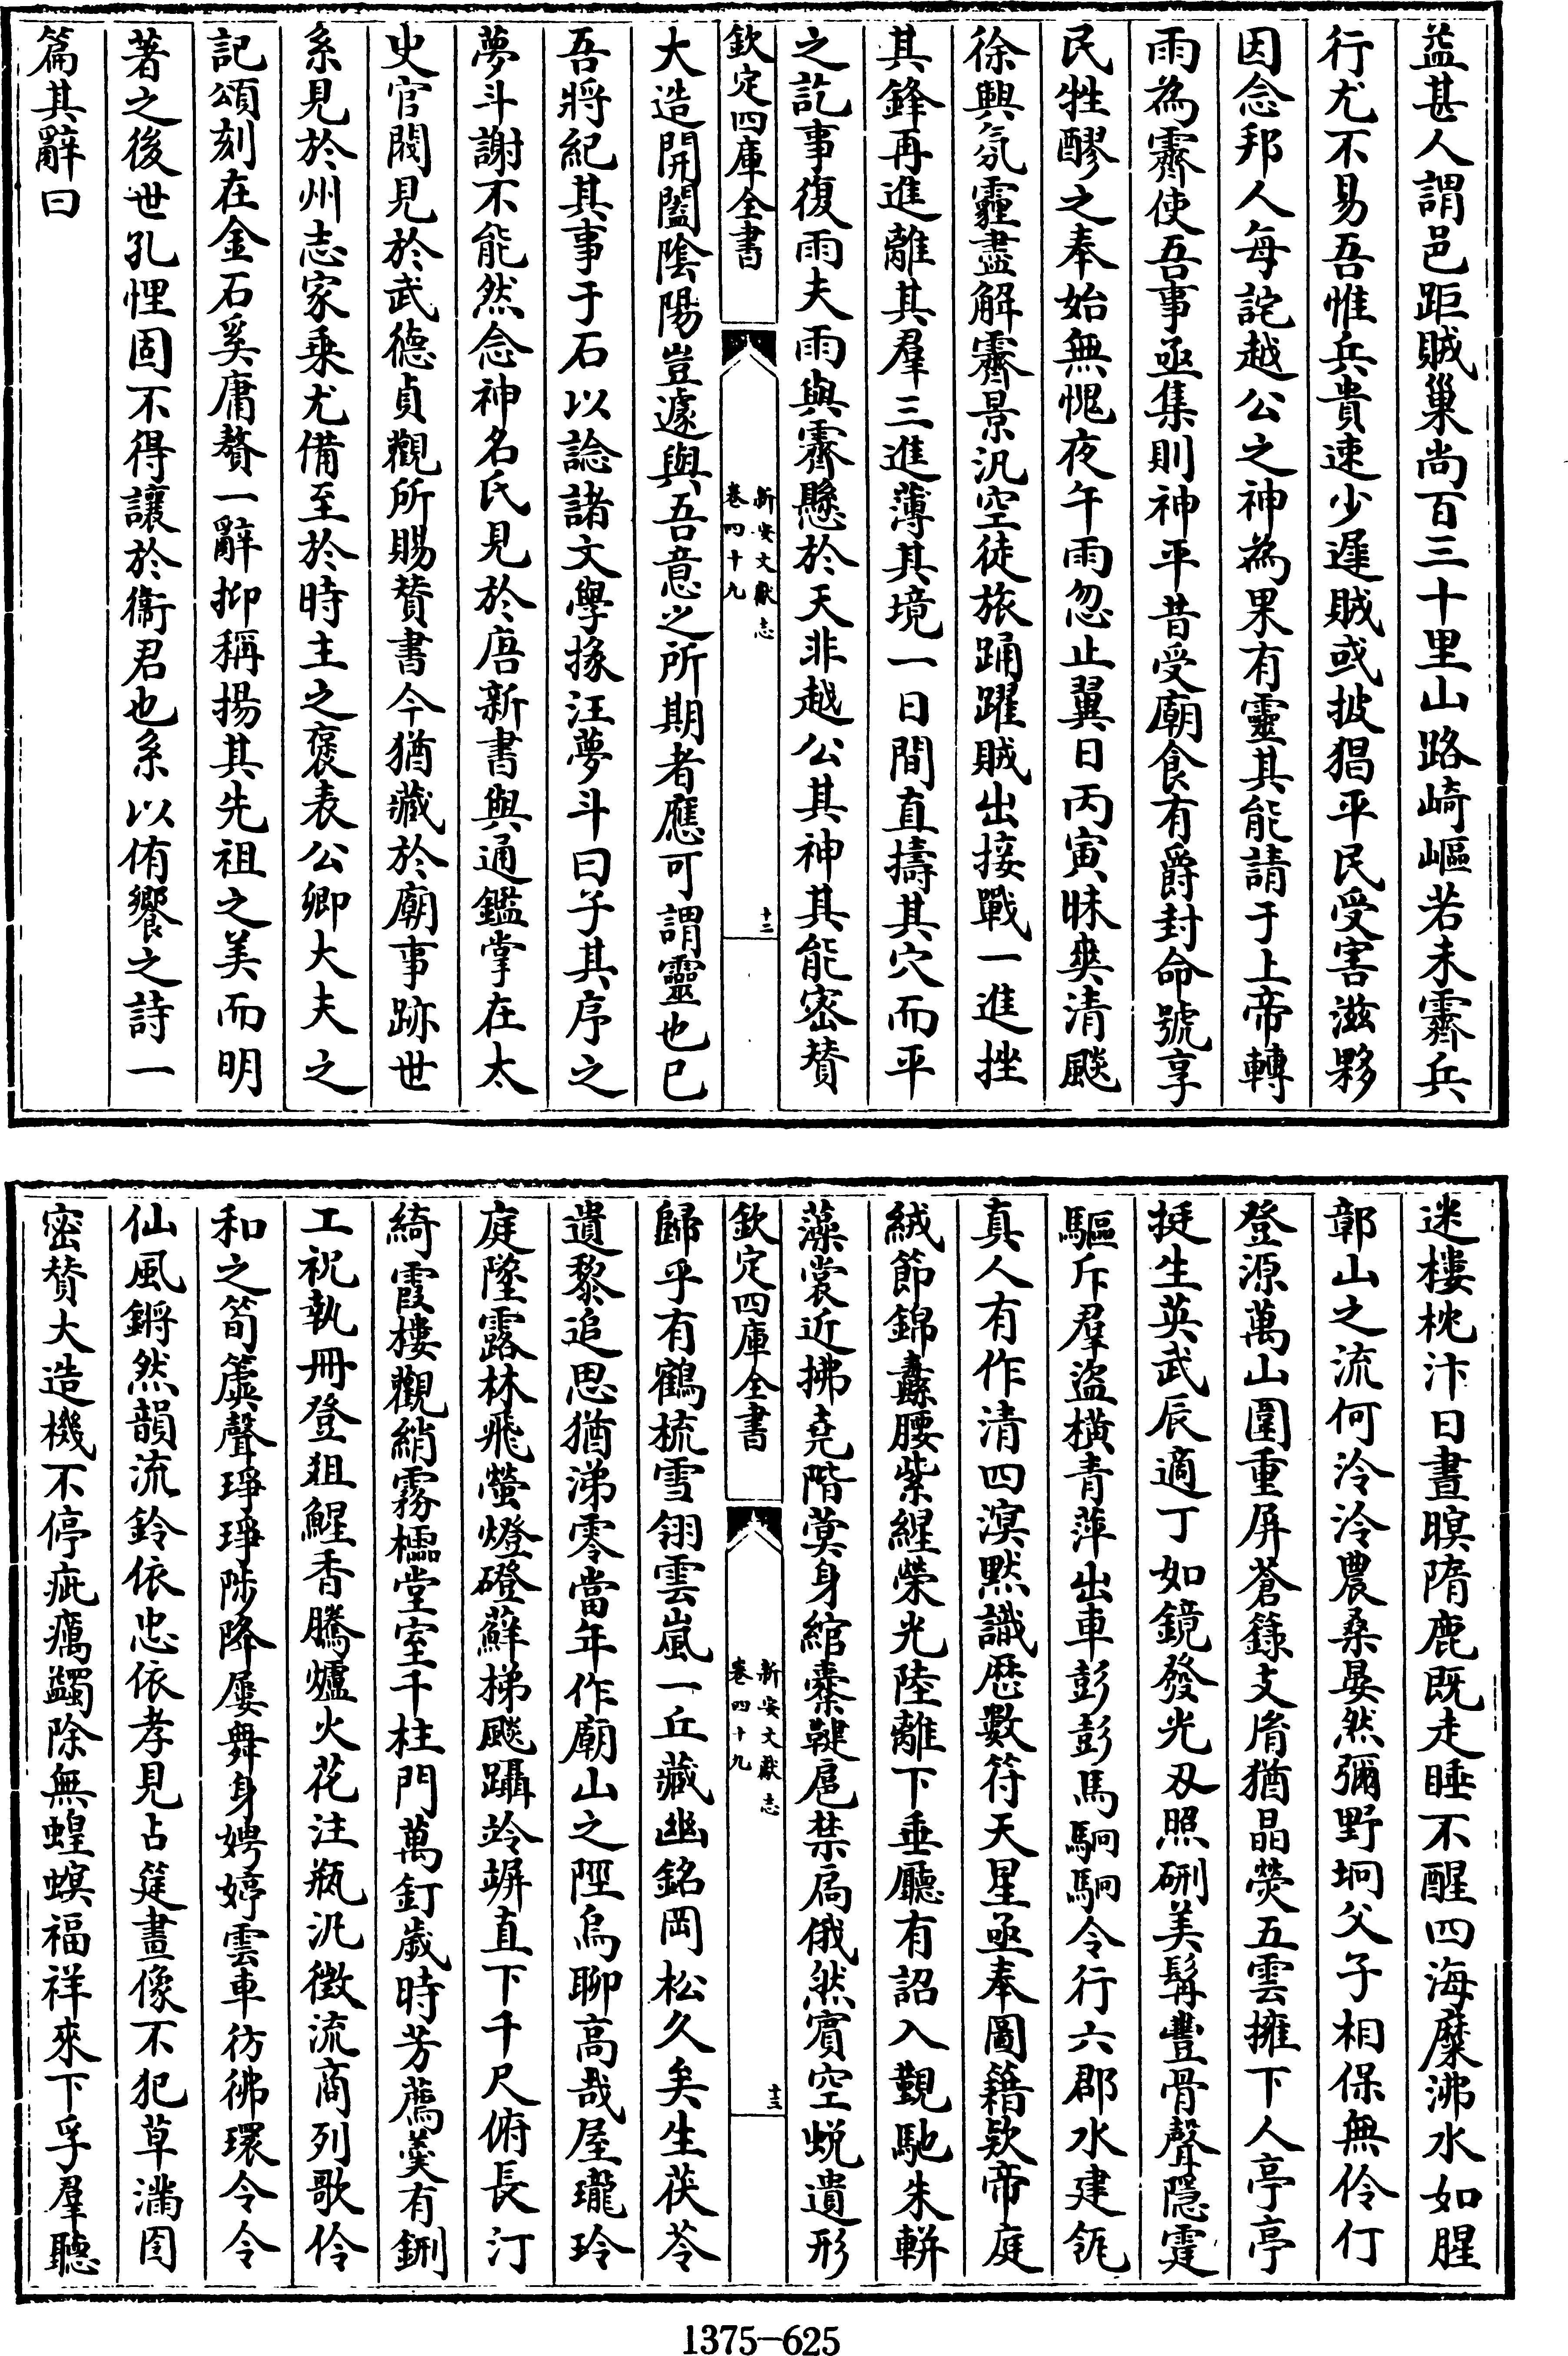 益甚人謂邑距賊巢尚百三十里山路崎嶇若未霽兵
行尤不易吾惟兵貴速少遲賊或披猖平民受害滋夥
因念邦人每詫越公之神為果有靈其能請于上帝轉
雨為霽使吾事亟集則神平昔受廟食有爵封命號享
民牲醪之奉始無愧夜午雨忽止翼日丙寅昧爽清飈
徐興氛霾盡解霽景汎空徒旅踊躍賊出接戰一進挫
其鋒再進離其羣三進薄其境一日間直擣其穴而平
之訖事復雨夫雨與霽懸於天非越公其神其能密贊
欽定四庫全書
新安文獻志
卷四十九
十二
大造開闔陰陽豈遽與吾意之所期者應可謂靈也已
吾將紀其事于石以諗諸文學掾汪夢斗曰子其序之
夢斗謝不能然念神名氏見於唐新書與通鑑掌在太
史官閥見於武德貞觀所賜贊書今猶藏於廟事跡世
系見於州志家乘尤備至於時主之褒表公卿大夫之
記頌刻在金石奚庸贅一辭抑稱揚其先祖之美而明
著之後世孔悝固不得讓於衛君也系以侑饗之詩一
篇其辭曰
迷樓枕汴日晝暝隋鹿既走睡不醒四海糜沸水如腥
鄣山之流何泠泠農桑晏然彌野坰父子相保無伶仃
登源萬山圍重屏蒼籙支胄猶晶熒五雲擁下人亭亭
挺生英武辰適丁如鏡發光刃照硎美髯豐骨聲隱霆
驅斥羣盜橫青萍出車彭彭馬駉駉令行六郡水建瓴
真人有作清四溟默識歷數符天星亟奉圖籍欵帝庭
絨節錦纛腰紫綎榮光陸離下垂廳有詔入覲馳朱軿
藻裳近拂堯階蓂身綰櫜鞬扈禁扃俄然賓空蛻遺形
欽定四庫全書
新安文獻志
卷四十九
十三
歸乎有鶴梳雪翎雲嵐一丘藏幽銘岡松久矣生茯苓
遺黎追思猶涕零當年作廟山之陘烏聊高哉屋瓏玲
庭墜露林飛螢燈磴蘚梯飈躡竛竮直下千尺俯長汀
綺霞樓觀綃霧櫺堂室千柱門萬釘歲時芳薦羮有鉶
工祝執冊登俎鯹香騰爐火花注瓶汎徵流商列歌伶
和之筍簴聲琤琤陟降屢舞身娉婷雲車彷彿環令令
仙風鏘然韻流鈴依忠依孝見占筳晝像不犯草滿囹
密贊大造機不停疵癘蠲除無蝗螟福祥來下孚羣聽
1375-625